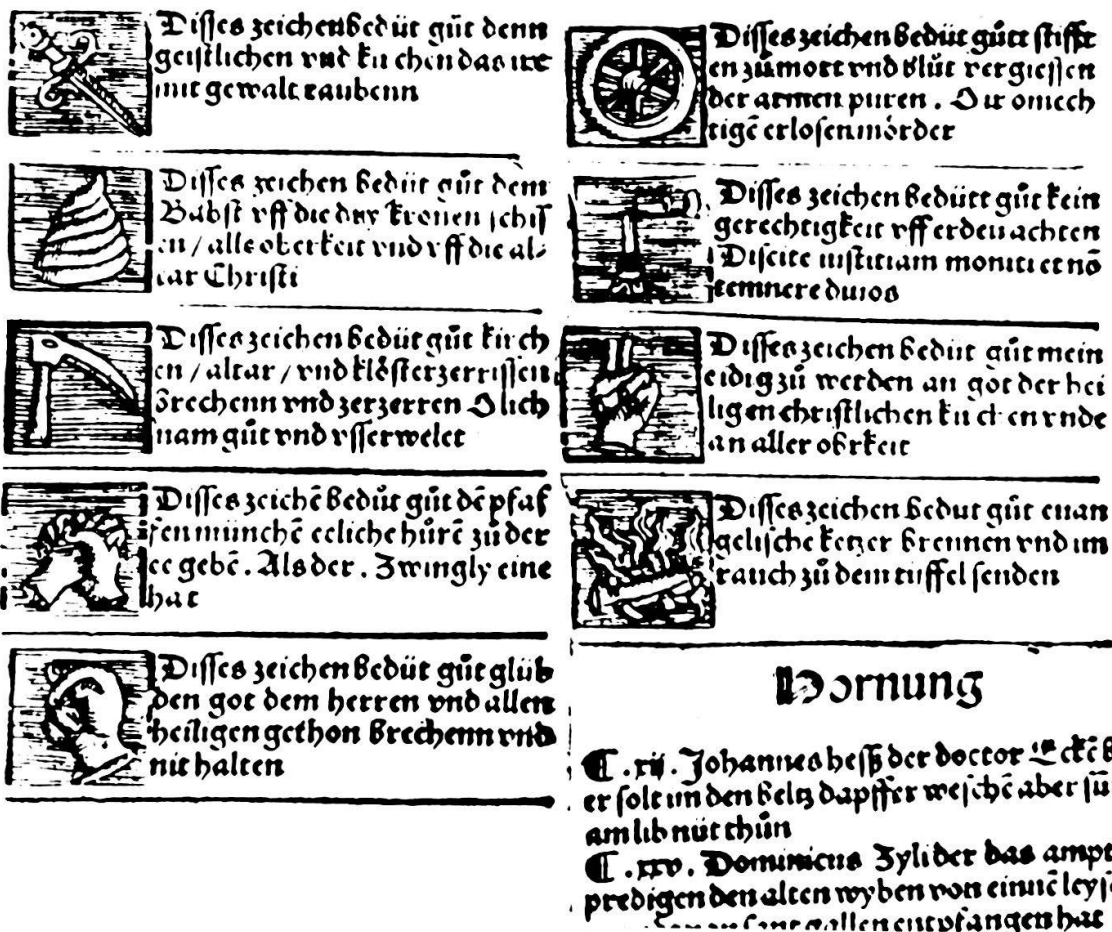 Disses zeichen bedüt gůt denn
geistlichen vnd kirchen das ire
mit gewalt raubenn
Disses zeichen bedüt gůt dem
Babst vff die dry kronen schiss
en / alle oberkeit vnd vff die al-
tar Christi
Disses zeichen bedüt gůt kirch
en / altar / vnd klöster zerrissen
brechenn vnd zerzerren O lich
nam gůt vnd vsserwelet
Disses zeichē bedüt gůt dē pfaf
fen münchē ecliche hůrē zů der
ee gebē. Als der. Zwingly eine
hat
Disses zeichen bedüt gůt glüb
den got dem herren vnd allen
heiligen gethon brechenn vnd
nit halten
Disses zeichen bedüt gůtt stifft
en zů mort vnd blůt vergiessen
der armen puren. O ir omech
tigē erlosen mörder
Disses zeichen bedütt gůt kein
gerechtigkeit vff erden achten
Discite iustitiam moniti et nō
temnere diuos
Disses zeichen bedüt gůt mein
eidig zů werden an got der hei
ligen christlichen kirchen vnde
an aller obrkeit
Disses zeichen bedut gůt euan
gelische ketzer brennen vnd im
rauch zů dem tüffel senden
Hornung
¶ .xij. Johannes hessz der doctor Eckē
er solt im den beltz dapffer weschē aber
am lib nüt thůn
¶ .xxv. Dominicus Zyli der das ampt
predigen den alten wyben von
sant gallen entpfangen hat